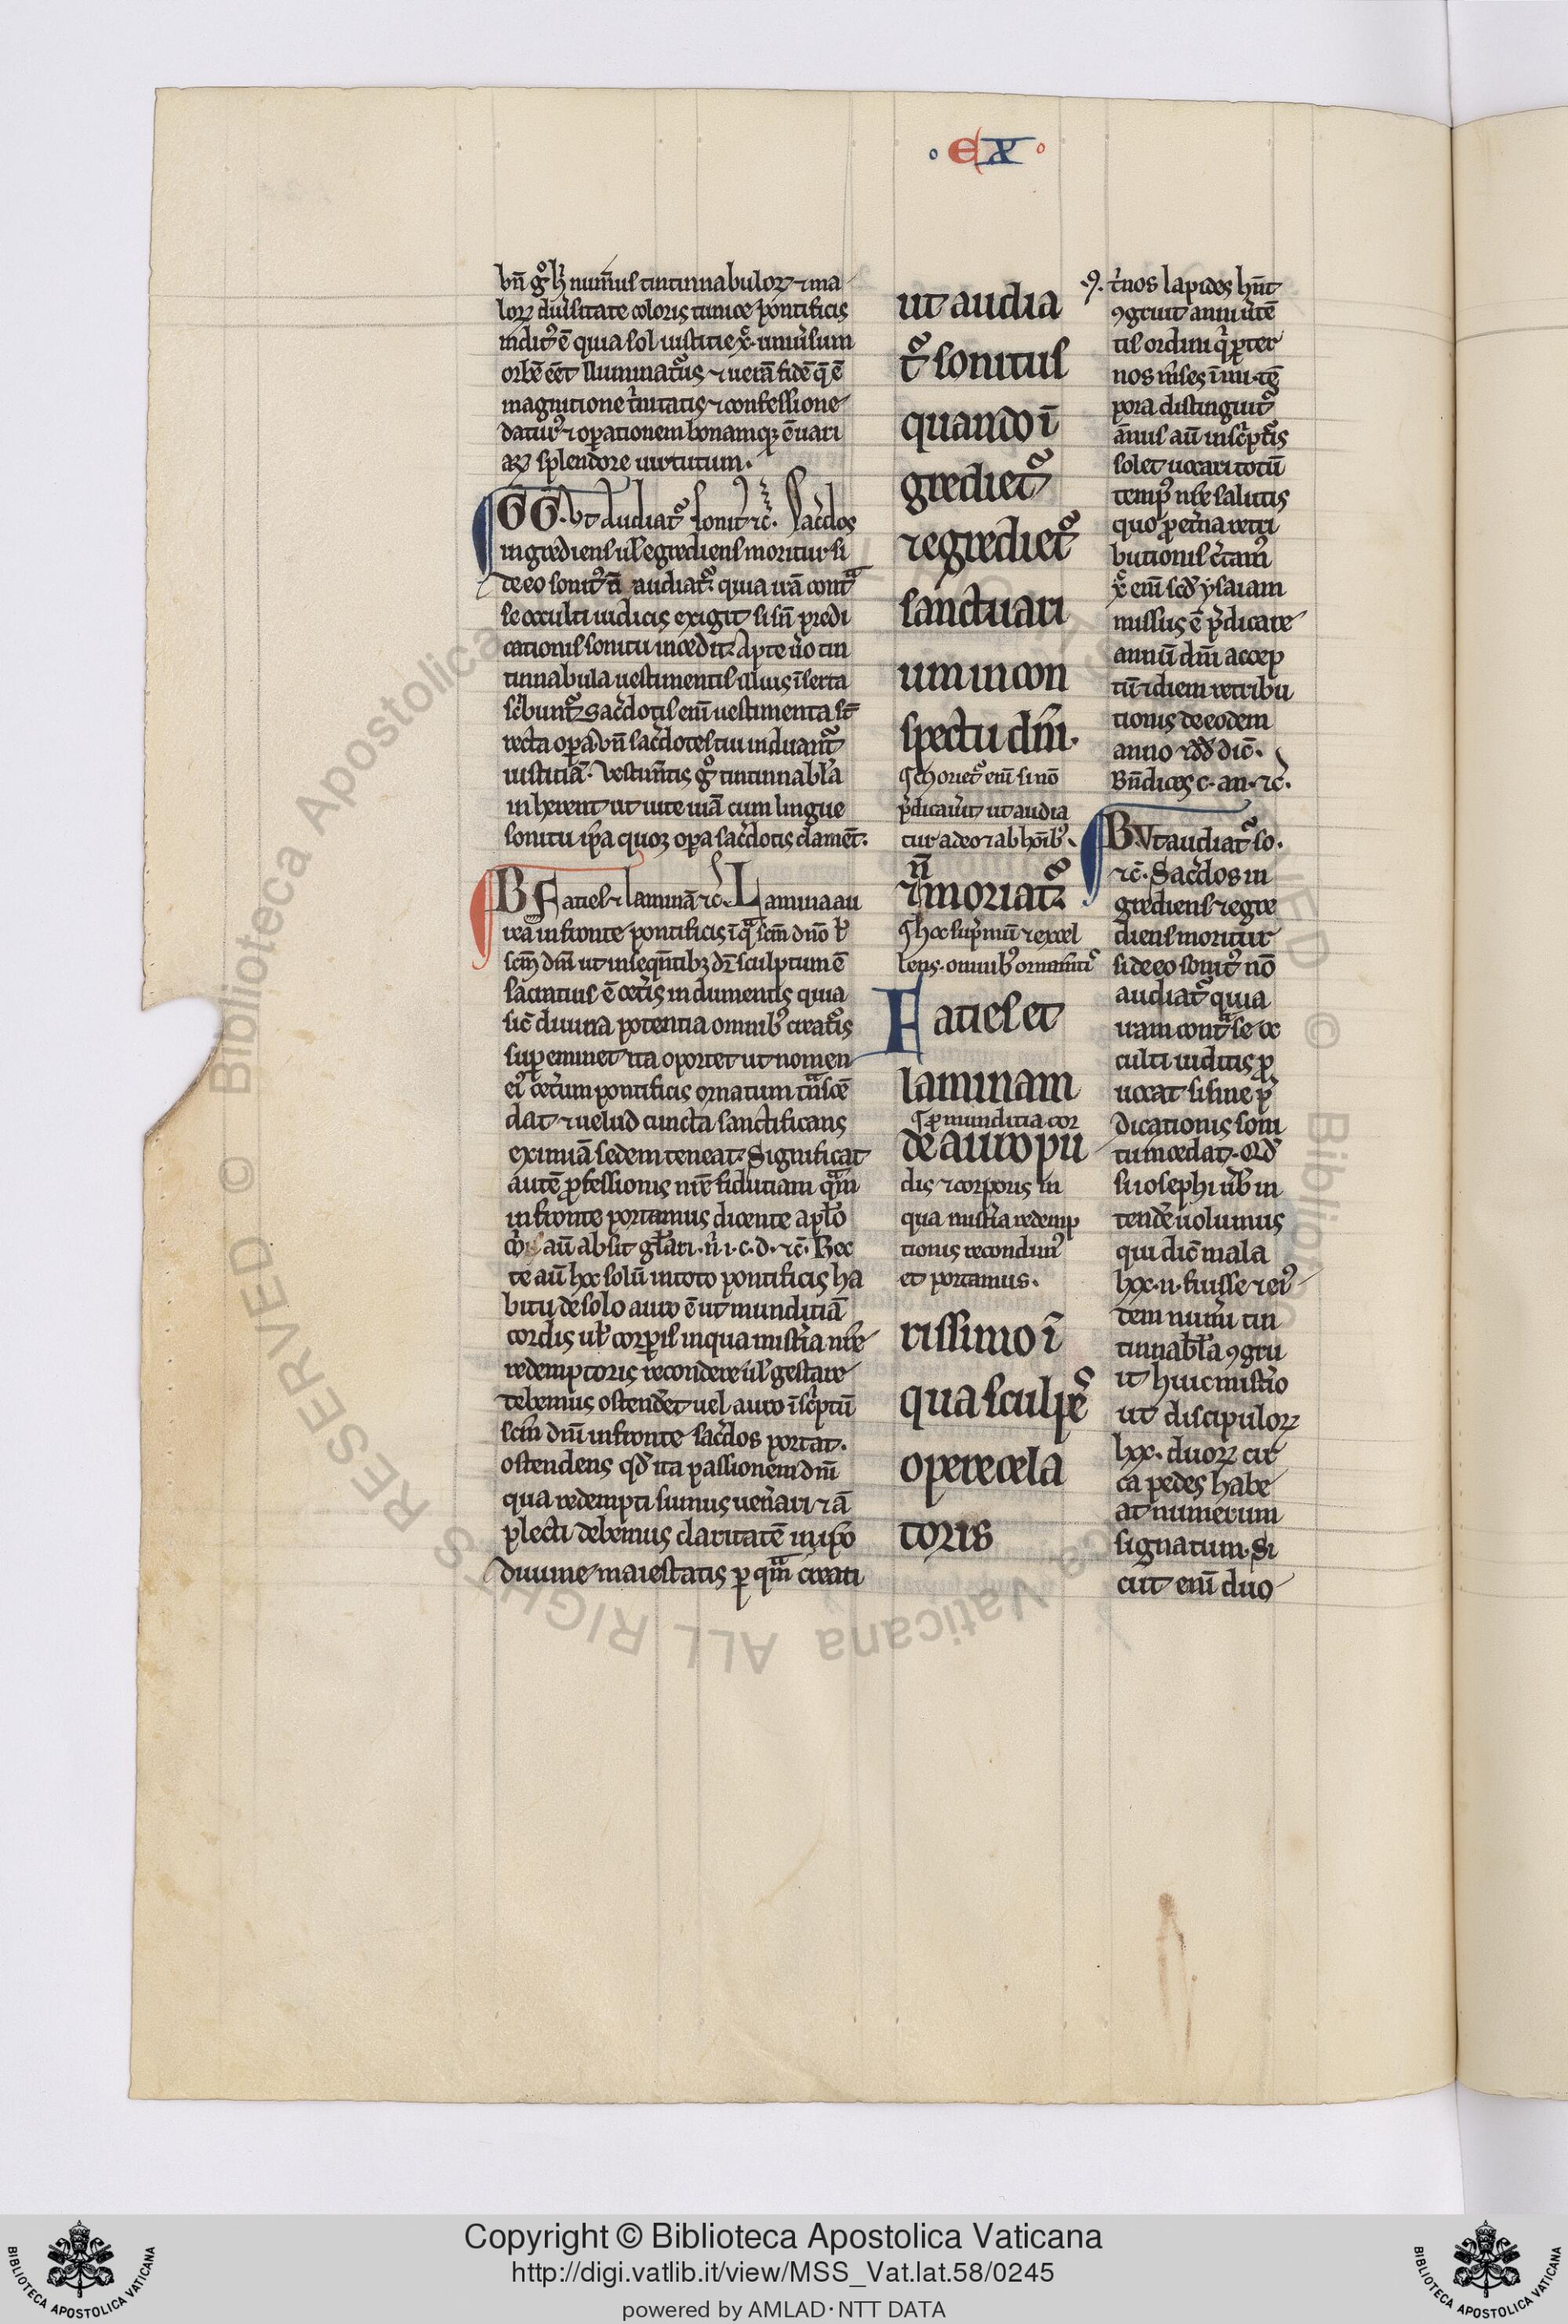 · EX ·
vn̄ gͦ hͥ num̄us tintinnabuloꝝ ⁊ ma
loꝝ diuͥsitate coloris tunice pontificis
indit᷒ ē quia sol iustitie xͨ. uniuͥsum
orbē eēt illuminatuͬs ⁊ uerā fidē q̄ ē
magnitione tͥnitatis ⁊ confessione
daturͧ ⁊ oꝑationem bonamqꝫ ē uari
aꝝ splendore uirtutum.
GG. vt Audiatͬ sonitꝰ ⁊c̄. Sacͥdos
ingrediens ul̓ egrediens moritur si
de eo sonitꝰ n̄ audiatͬ. quia irā contͣ
se occulti iudicis exigit si sn̄ predi
cationis sonitu incedit. Apte uͦo tin
tinnabula uestimentis illius īserta
scͥbuntͬ. Sacͥdotis enī uestimenta st̄
recta oꝑa. vn̄ sacͥdotes tui induantͬ
iustitiā. Vestimn̄tis gͦ tintinnabl̓a
inherent ut uite uiā cum lingue
sonitu ip̄a quoqꝫ oꝑa sacͥdotis clament.
B Facies ⁊ laminā ⁊c̄. Lamina au
rea in fronte pontificis ī qͣ scm̄ dn̄o ul̓
scm̄ dn̄i ut in seqn̄tibꝫ dr̄ sculptum ē
sacratius ē cetͥis indumentis quia
sic̄ diuina potentia omnibꝰ creatͥs
suꝑeminet ita oportet ut nomen
eiꝰ cetͥum pontificis ornatum tͣnscē
dat ⁊ uelud cuncta sanctificans
eximiā sedem teneat. Significat
autē ꝓfessionis nr̄e fiduciam qͣm
in fronte portamus dicente apl̓o
M̓ aū absit gl̓ari. n̓. i. c. d. ⁊c̄. Rec
te aū hoc solū in toto pontificis ha
bitu de solo auro ē ut munditiā
cordis ul̓ corꝑis in qua mistͥia nr̄e
redemptoris recondere ul̓ gestare
debemus ostendet uel auro īscͥptū
scm̄ dn̄i in fronte sacͥdos portat.
ostendens qd̓ ita passionem dn̄i
qua redempti sumus uenͥari ⁊ ā
plecti debemus claritatē in ip̄o
diuine maiestatis ꝑ qͣm creati
ut audia
tͬ sonitus
quando ī
gredietͬ
⁊ egredietͬ
sanctuari
um in con
spectu dn̄i.
¶ Morietͬ enī si nō
p̄dicauͥit ut audia
tur a deo ⁊ ab hoīb᷒.
⁊ n̄ moriatͬ.
¶ hoc supͥmū ⁊ excel
lens omnibꝰ ornamn̄tͥ
Facies et
laminam
¶ ꝑ munditia cor
de auro pu
dis ⁊ corporis in
qua mistͥia redemp
tionis recondimꝰ
et portamus.
rissimo ī
qua sculpēs
opere cela
toris
·9· tͥnos lapides hn̄t
ꝯgruit anni uͥtē
tis ordini qͥ ꝑ ter
nos mēses īmi tē
pora distinguitͬ
annus aū in scͥptͥis
solet uocari totū
tempꝰ nr̄e salutis
quo ꝓ etͥna retri
butionis cͥtamꝰ
xͨ enī scd̓ ysaiam
missus ē p̄dicare
annū dn̄i accep
tū ⁊ diem retribu
tionis de eodem
anno ⁊ dd̓ dic̄.
Bn̄dices c. an. ⁊c̄.
B. Vt audiatͬ so.
⁊c̄. Sacͥdos in
grediens ⁊ egre
diens moritur
si de eo sonitꝰ nō
audiatͬ quia
iram contͣ se oc
culti iuditis ꝓ
uocat si sine p̄
dicationis soni
tu incedat. Qd̓
si iosephi ub̓ in
tendͥe uolumus
qui dic̄ mala
hoc. n. fuisse ⁊ eiꝰ
dem numͥi tin
tinnabl̓a ꝯgru
it huic mistͥio
ut discipuloꝝ
hoc. duoꝝ cir
ca pedes habe
at numerum
signatum. Si
cut enī duo
Copyright © Biblioteca Apostolica Vaticana
http://digi.vatlib.it/view/MSS_Vat.lat.58/0245
powered by AMLAD · NTT DATA
BIBLIOTECA APOSTOLICA VATICANA
BIBLIOTECA APOSTOLICA VATICANA
© Biblioteca Apostolica Vaticana ALL RIGHTS RESERVED